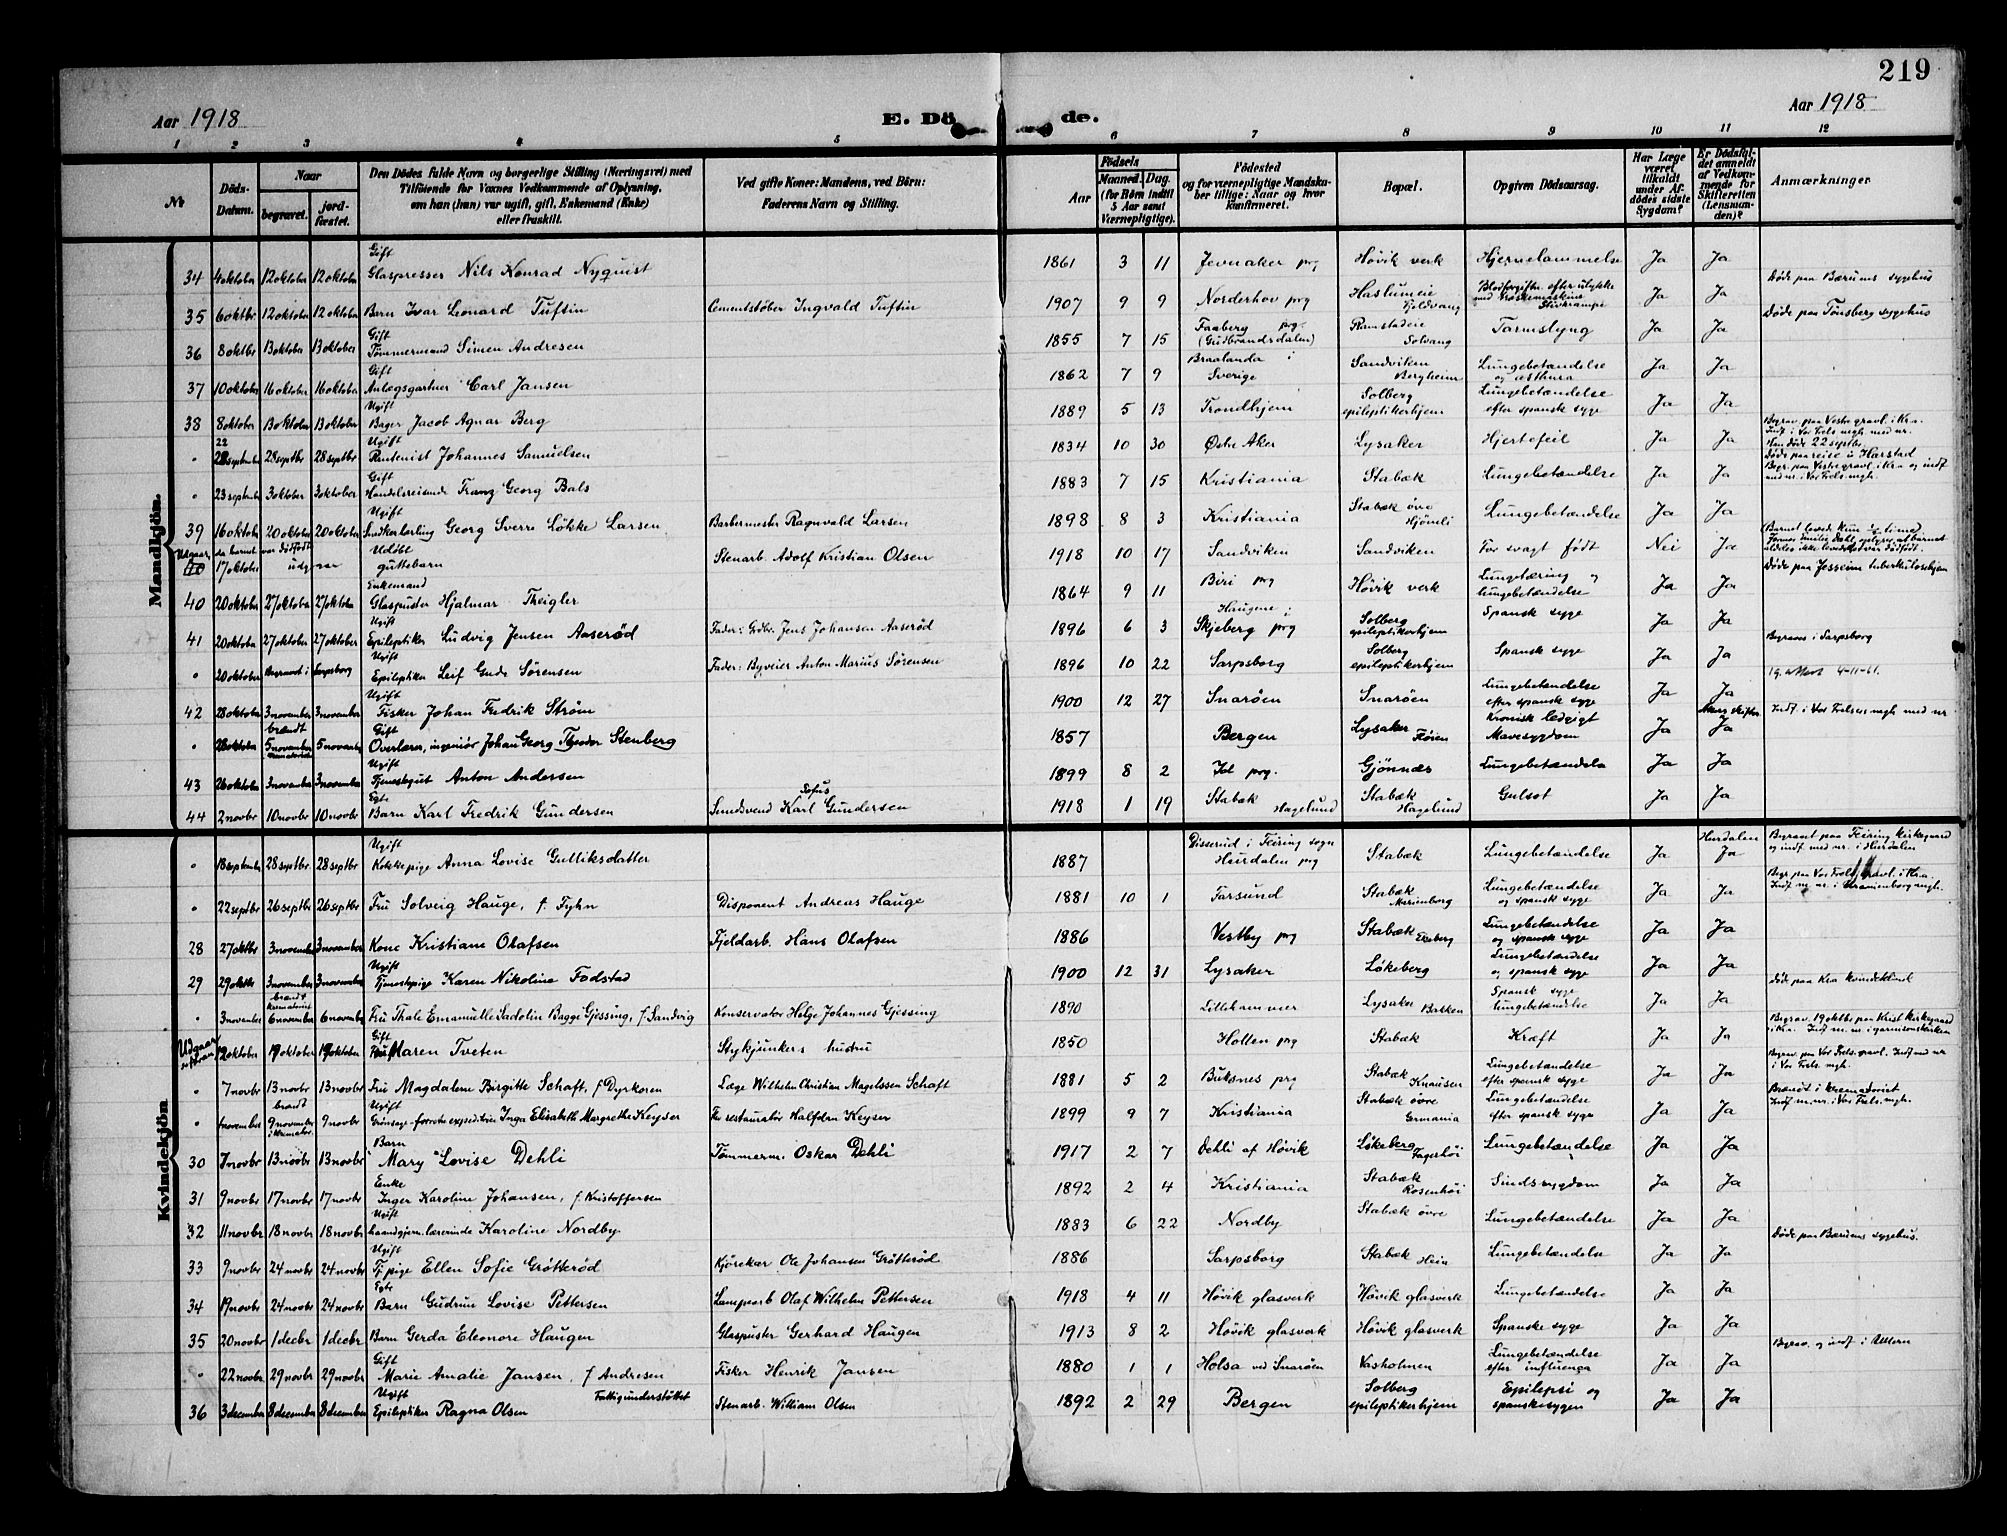 219
Aar 1918
E. Dö de.
Aar 1918
1 2 3 4 5 6 7 8 9 10 11 12
№
Döds-Datum.
Naar
begravet.
jordfæstet.
Den Dödes fulde Navn og borgerlige Stilling (Næringsvei) med
Tilföiende for Voxnes Vedkommende af Oplysning,
om han (hun) var ugift, gift, Enkemand (Enke)
eller fraskilt.
Ved gifte Koner: Mandens, ved Börn:
Faderens Navn og Stilling.
Aar
Födsels
Maaned. Dag.
(for Börn indtil
5 Aar samt
Værnepligtige).
Födested
og for værnepligtige Mandskaber tillige: Naar og hvor
konfirmeret.
Bopæl.
Opgiven Dödsaarsag.
Har Læge været tilkaldt under Afdödes sidste Sygdom?
Er Dödsfaldet anmeldt af Vedkommende for Skifteretten (Lensmanden)?
Anmærkninger
Mandkjön.
34 4 oktober 12 oktober 12 oktober Gift Glaspresser Nils Konrad Nyquist 1861 3 11 Jevnaker prg Høvik verk Hjernelammelse Ja Ja
35 6 oktbr 12 oktober 12 oktober Barn Ivar Leonard Tuftin Cementstøber Ingvald Tuftin 1907 9 9 Norderhov prg Haslumeie Fjeldvang Blodforgiftn. efter ulykke med Stivkrampe Ja Ja Døde paa Bærums sygehus
36 8 oktbr 13 oktober 13 oktober Gift Tømmermand Simen Andresen 1855 7 15 Faaberg prg. (Gudbrandsdalen) Ramstadeie Solvang Tarmslyng Ja Ja Døde paa Tønsberg sygehus
37 10 oktober 16 oktober 16 oktober Gift Anlægsgartner Carl Jansen 1862 7 9 Braalanda i Sverige Sandviken Bergheim Lungebetændelse og æsthma Ja Ja
38 8 oktober 13 oktober 13 oktober Ugift Bager Jacob Agnar Berg 1889 5 13 Trondhjem Solberg epileptikerhjem Lungebetændelse efter spansk syge Ja Ja
" 22 september 28 septbr 28 septbr Ugift Rentenist Johannes Samuelsen 1834 10 30 Østre Aker Lysaker Hjertefeil Ja Ja Begrav. paa Vestre gravl. i Kra. Indf. i Vor Frels. mgh med nr. Han døde 22 septbr.
" 23 september 3 oktober 3 oktober Gift Handelsreisende Franz Georg Bals 1883 7 15 Kristiania Stabæk Lungebetændelse Ja Ja Døde paa reise i Harstad Begr. paa Vestre gravl. i Kra og indf med nr. i Vor Frels. mgh.
39 16 oktober 20 oktober 20 oktober Ugift Snekkerlærling Georg Sverre Løkke Larsen Barbermester Ragnvald Larsen 1898 8 3 Kristiania Stabæk øvre Lungebetændelse Ja Ja
Udgaar da barnet var dødfødt 17 oktober udgaar Udøbt guttebarn Stenarb. Adolf Kristian Olsen 1918 10 17 Sandviken Sandviken For svagt født Nei Ja
40 20 oktober 27 oktober 27 oktober Enkemand Glaspuster Hjalmar Theigler 1864 9 11 Biri prg Høvik verk Lungtæring og lungebetændelse Ja Ja Døde paa Jossein tuberkulosehjem
41 20 oktober 27 oktober 27 oktober Ugift Epileptiker Ludvig Jensen Aaserød Fader: Grdbr. Jens Johansen Aaserød 1896 6 3 Haugene i Skjeberg prg Solberg epileptikerhjem Spansk syge Ja Ja
" 20 oktober Begravet i Sarpsborg Ugift Epileptiker Leif Gude Sørensen Fader: Byveier Anton Marius Sørensen 1896 10 22 Sarpsborg Solberg epileptikerhjem Spansk syge Ja Ja Begraves i Sarpsborg
42 28 oktober 3 november 3 november Ugift Fisker Johan Fredrik Strøm 1900 12 27 Snarøen Snarøen Lungebetændelse efter spansk syge Ja Ja 4-11-61.
" 28 oktober brændt 5 november 5 november Gift Overlærer, ingeniør Johan Georg Theodor Stenberg 1857 Bergen Lysaker Fløien Kronisk ledgigt Mavesygdom Ja Ja Indf. i Vor Frelsers mgh med nr
43 26 oktober 3 november 3 november Ugift Tjenestegut Anton Andersen 1899 8 2 Gjønnæs Lungebetændelse Ja Ja
44 2 novbr 10 novbr 10 novbr Egte Barn Karl Fredrik Gundersen Smedsvend Karl Sofus Gundersen 1918 1 19 Stabæk Hagelund Stabæk Hagelund Gulsot Ja Ja
Kvindekjön
" 18 september 28 septbr 28 septbr Ugift Kokkepige Anna Lovise Gulliksdatter 1887 Disserud i Feiring sogn Hurdalen prg Stabæk Lungebetændelse Ja Hurdalen Ja Begravet paa Feiring kirkegaard og indf. med nr. i Hurdalen
" 22 septbr 26 septbr 26 septbr Fru Solveig Hauge, f. Fyhn Disponent Andreas Hauge 1881 10 1 Farsund Stabæk Marienborg Lungebetændelse og spansk syge Ja Ja Begr. paa Vor Frels. gravl. i Kra. Indf. m. nr. i Uranienborg mgh.
28 27 oktbr 3 november 3 november Kone Kristiane Olafsen Fjeldarb. Hans Olafsen 1886 Vestby prg Stabæk Ekeberg Lungebetændelse og spansk syge Ja Ja
29 29 oktbr 3 november 3 november Ugift Tjenestepige Karen Nikoline Fodstad 1900 12 31 Lysaker Løkeberg Lungebetændelse og spansk syge Ja Ja
" 3 november brændt krematoriet 6 november 6 november Fru Thale Emanuelle Sadolin Bagge Gjessing, f. Sandvig Konservator Helge Johannes Gjessing 1890 Lillehammer Lysaker Bakken Spansk syge lungebetændelse Ja Ja Døde paa Kra kvindeklinik
Udgaar 12 oktober 19 oktober 19 oktober Gift Fru Maren Tveten Stykjunkers hustru 1850 Hollen prg Stabæk Kræft Ja Ja Begrav. 19 oktbr paa Krist kirkegaard i Kra. Indf. m. nr. i garnisonskirken
" 7 novbr 13 novbr 13 novbr Fru Magdalene Birgitte Schaft, f. Dyrkoren Læge Wilhelm Christian Magelssen Schaft 1881 5 2 Buksnes prg Stabæk Knausen Lungebetændelse efter spansk syge Ja Ja Begrav. paa Vor Frels. gravl. Indf med nr i Vor Frels. mgh.
" 4 november brændt 9 november i kremator. 9 novbr Ugift Inga Elisabeth Margrethe Keyser Fhv restauratør Halfdan Keyser 1899 9 7 Kristiania Stabæk øvre Germania Lungebetændelse efter spansk syge Ja Ja Brændt i krematoriet Indf. m. nr. i Vor Frels. mgh.
30 7 novbr 13 novbr 13 novbr Barn Mary Lovise Dehli Tømmerm. Oskar Dehli 1917 2 7 Dehli af Høvik Løkeberg Fagerhøi Lungebetændelse Ja Ja
31 9 novbr 17 novbr 17 novbr Enke Inger Karoline Johansen, f. Kristoffersen 1892 2 4 Kristiania Stabæk Rosenhøi Sindssygdom Ja Ja
32 11 novbr 18 novbr 18 novbr Ugift haandgjern. lærerinde Karoline Nordby 1883 6 22 Nordby Stabæk øvre Lungebetændelse Ja Ja
33 9 novbr 24 novbr 24 novbr Ugift Tj. pige Ellen Sofie Grøtterød Kjørekar Ole Johansen Grøtterød 1886 Sarpsborg Stabæk Heia Lungebetændelse Ja Ja Døde paa Bærums sygehus.
34 19 novbr 24 novbr 24 novbr Egte Barn Gudrun Lovise Pettersen Lampearb Olaf Wilhelm Pettersen 1918 4 11 Høvik glasverk Høvik glasverk Lungebetændelse Ja Ja
35 20 novbr 1 decbr 1 decbr Barn Gerda Eleonore Haugen Glaspuster Gerhard Haugen 1913 8 2 Høvik glasverk Høvik glasverk Spanske syge Ja Ja
" 22 novbr 29 novbr 29 novbr Gift Marie Amalie Jansen, f. Andresen Fisker Henrik Jansen 1880 1 1 Holsa ved Snarøen Vasholmen Lungebetændelse efter influenza Ja Ja Begrav. og indf. i Ullern
36 3 december 8 december 8 december Ugift Epileptiker Ragna Olsen Fattigunderstøttet Stenarb. William Olsen 1892 2 29 Bergen Solberg epileptikerhjem Epilepsi og spanskesygen Ja Ja